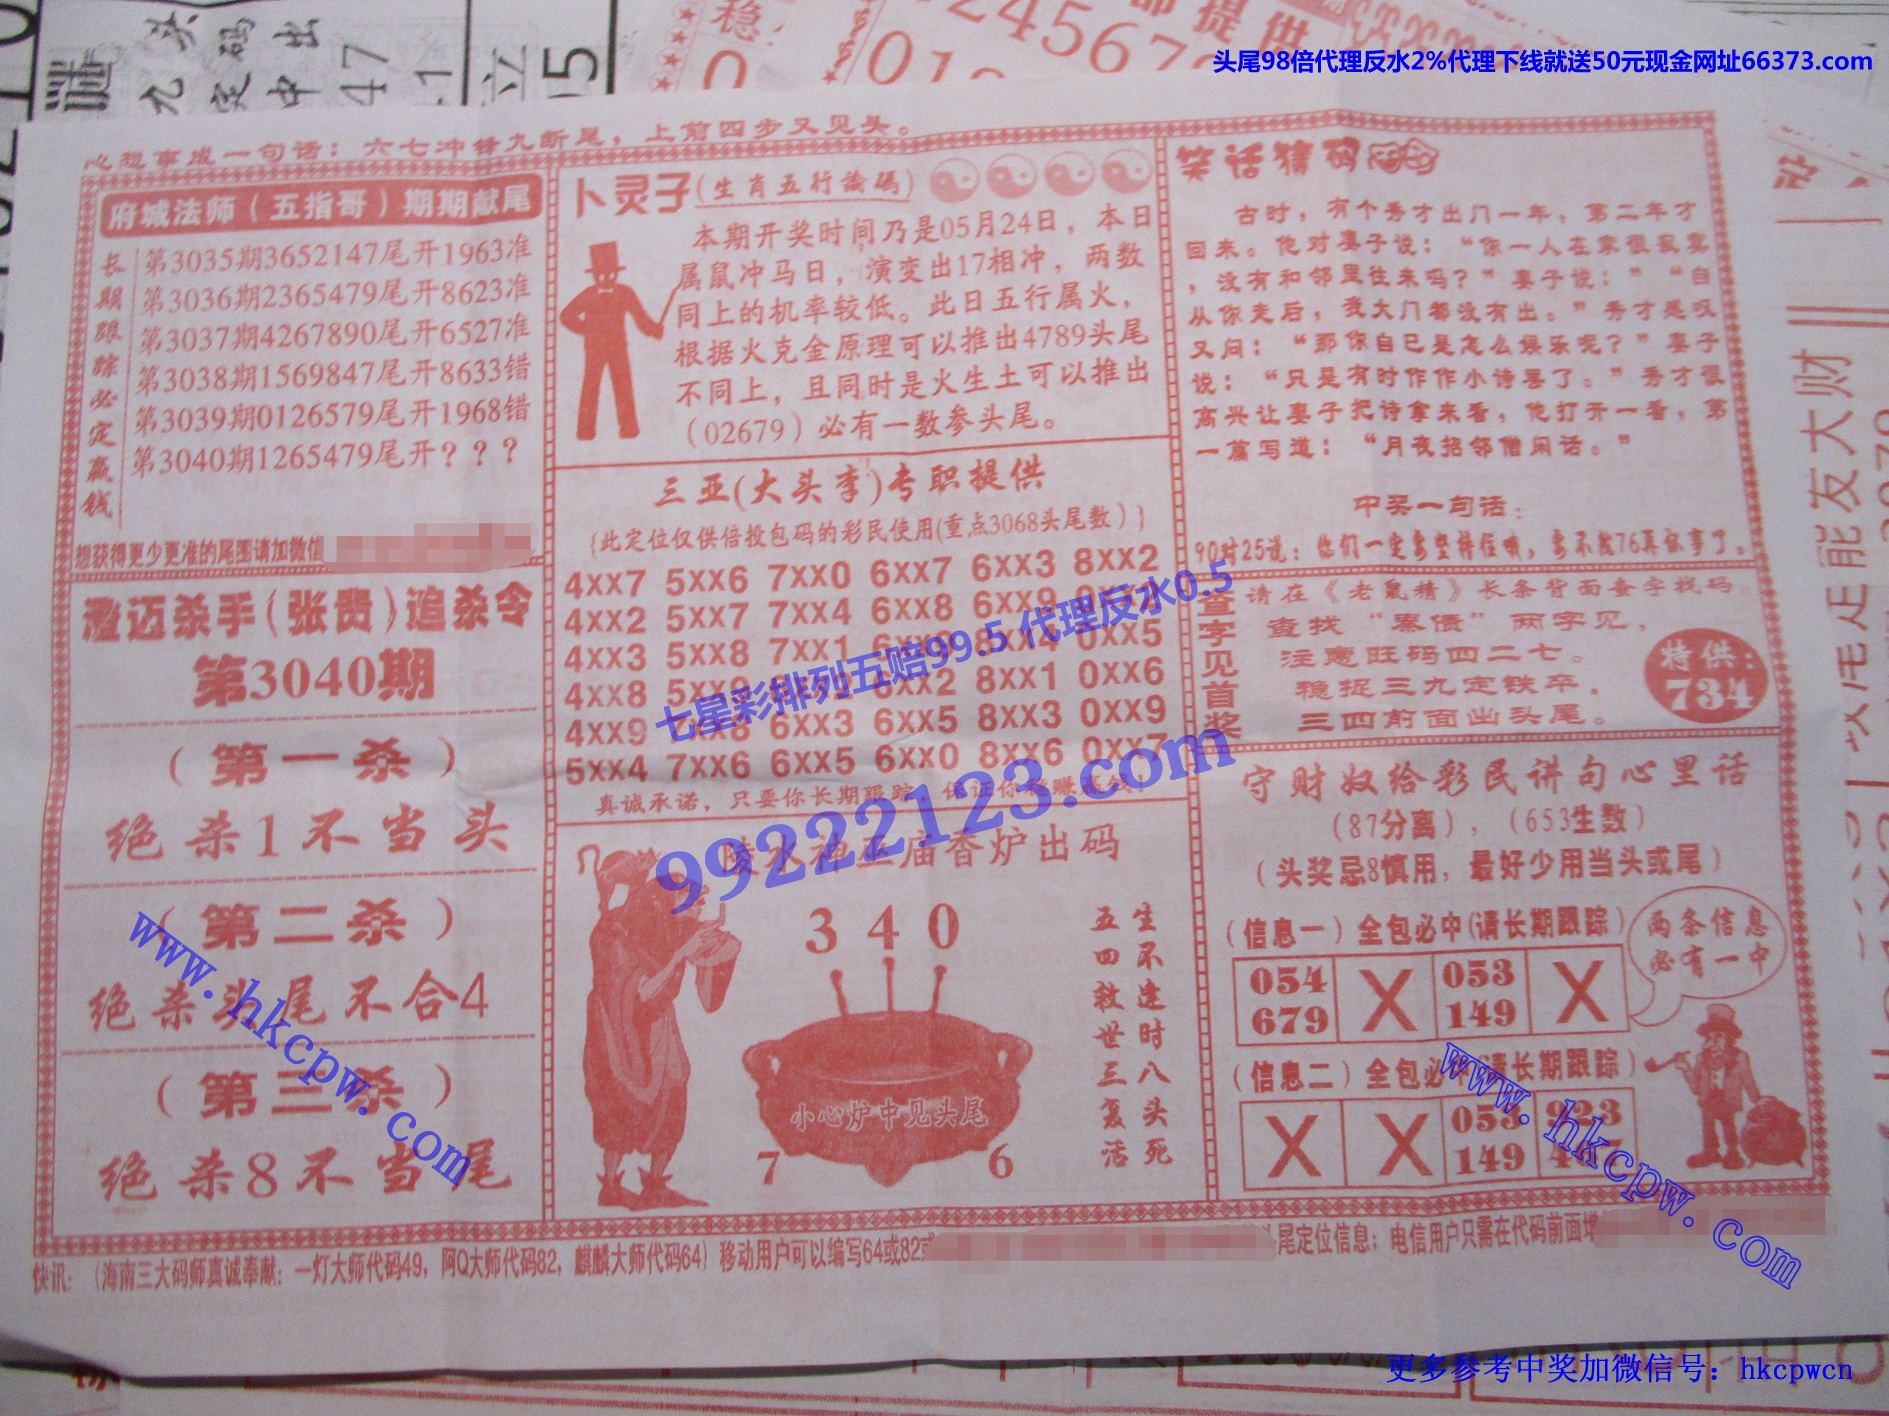 头尾98倍代理反水2%代理下线就送50元现金网址66373.com
心想事成一句话：六七冲锋九断尾，上前四步又见头。
府城法师（五指哥）期期献尾
长期跟踪必定赢钱
第3035期3652147尾开1963准
第3036期2365479尾开8623准
第3037期4267890尾开6527准
第3038期1569847尾开8633错
第3039期0126579尾开1968错
第3040期1265479尾开？？？
想获得更少更准的尾围请加微信
澄迈杀手(张贵)追杀令
第3040期
（第一杀）
绝杀1不当头
（第二杀）
绝杀头尾不合4
（第三杀）
绝杀8不当尾
卜灵子(生肖五行论码)
本期开奖时间乃是05月24日，本日
属鼠冲马日，演变出17相冲，两数
同上的机率较低。此日五行属火，
根据火克金原理可以推出4789头尾
不同上，且同时是火生土可以推出
（02679）必有一数参头尾。
三亚(大头李)专职提供
{此定位仅供倍投包码的彩民使用(重点3068头尾数）}
4xx7 5xx6 7xx0 6xx7 6xx3 8xx2
4xx2 5xx7 7xx4 6xx8 6xx9
4xx3 5xx8 7xx1 8xx4 0xx5
4xx8 6xx2 8xx1 0xx6
4xx9 6xx3 6xx5 8xx3 0xx9
5xx4 7xx6 6xx5 6xx0 8xx6 0xx7
真诚承诺，只要你长期跟踪，保证你
七星彩排列五赔99.5 代理反水0.5
99222123.com
陵水神王庙香炉出码
3 4 0
小心炉中见头尾
7 6
生不逢时八头死
五四救世三复活
笑话猜码
古时，有个秀才出门一年，第二年才
回来。他对妻子说：“你一人在家很寂寞
，没有和邻里往来吗？”妻子说：”“自
从你走后，我大门都没有出。”秀才感叹
又问：“那你自己是怎么娱乐呢？”妻子
说：“只是有时作作小诗罢了。”秀才很
高兴让妻子把诗拿来看，他打开一看，第
一篇写道：“月夜招邻僧闲话。”
中奖一句话：
90对25说：你们一定要坚持住哦，要不然76再坏事了。
查字见首奖
请在《老鼠精》长条背面查字找码。
查找“秦债”两字见，
注意旺码四二七。
稳捉三九定铁卒，
三四前面出头尾。
特供：
734
守财奴给彩民讲句心里话
（87分离），（653生数）
（头奖忌8慎用，最好少用当头或尾）
（信息一）全包必中(请长期跟踪)
054 679 X 053 149 X
两条信息
必有一中
（信息二）全包必中(请长期跟踪)
X X 053 149
www.hkcpw.com
www.hkcpw.com
快讯：（海南三大码师真诚奉献：一灯大师代码49，阿Q大师代码82，麒麟大师代码64）移动用户可以编写64或82或
头尾定位信息；电信用户只需在代码前面增
更多参考中奖加微信号：hkcpwcn